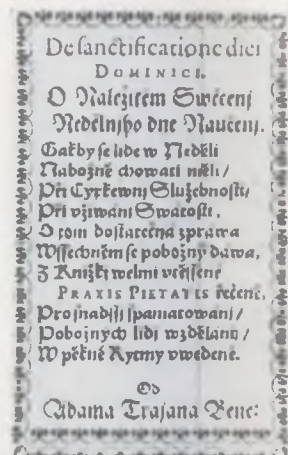 De sanctificatione diei
DOMINICI.
O Naležitém Swěcenj
Nedělnjho dne Naučenj.
Gakby se lidé w Neděli
Nábožně chowati měli /
Při Cyrkewnj Služebnosti /
Při vžjwánj Swátosti,
O tom dostatečná zpráwa
Wssechněm se pobožným dáwa,
Z Knižky welmi vtěssené
PRAXIS PIETATIS řečené,
Pro snadněgssj spamatowánj /
Pobožných lidj wzdělánj /
W pěkné Rytmy vwedené.
Od
Adama Trajana Bene: